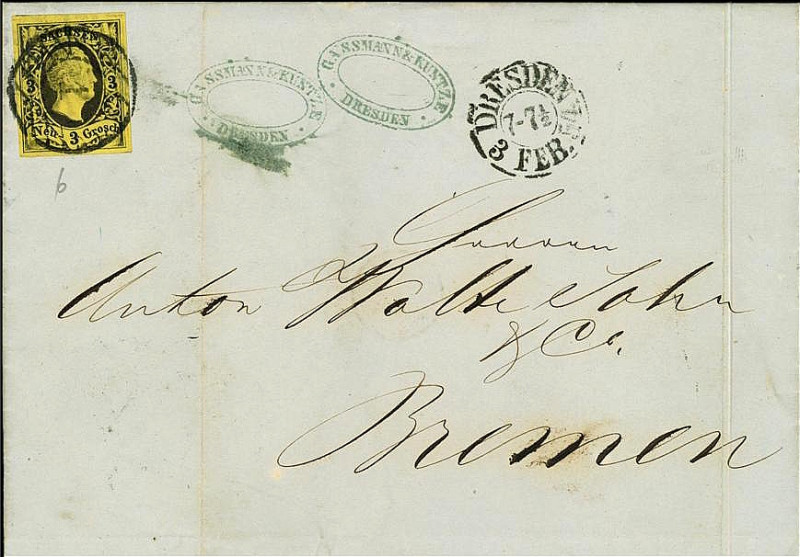 SACHSEN
3 3
Neu- 3 Grosch.
GASSMANN & KUNTZE
· DRESDEN ·
GASSMANN & KUNTZE
· DRESDEN ·
DRESDEN
7-7½
3 FEB.
6
Herren
Anton Sohn
& Co.
Bremen